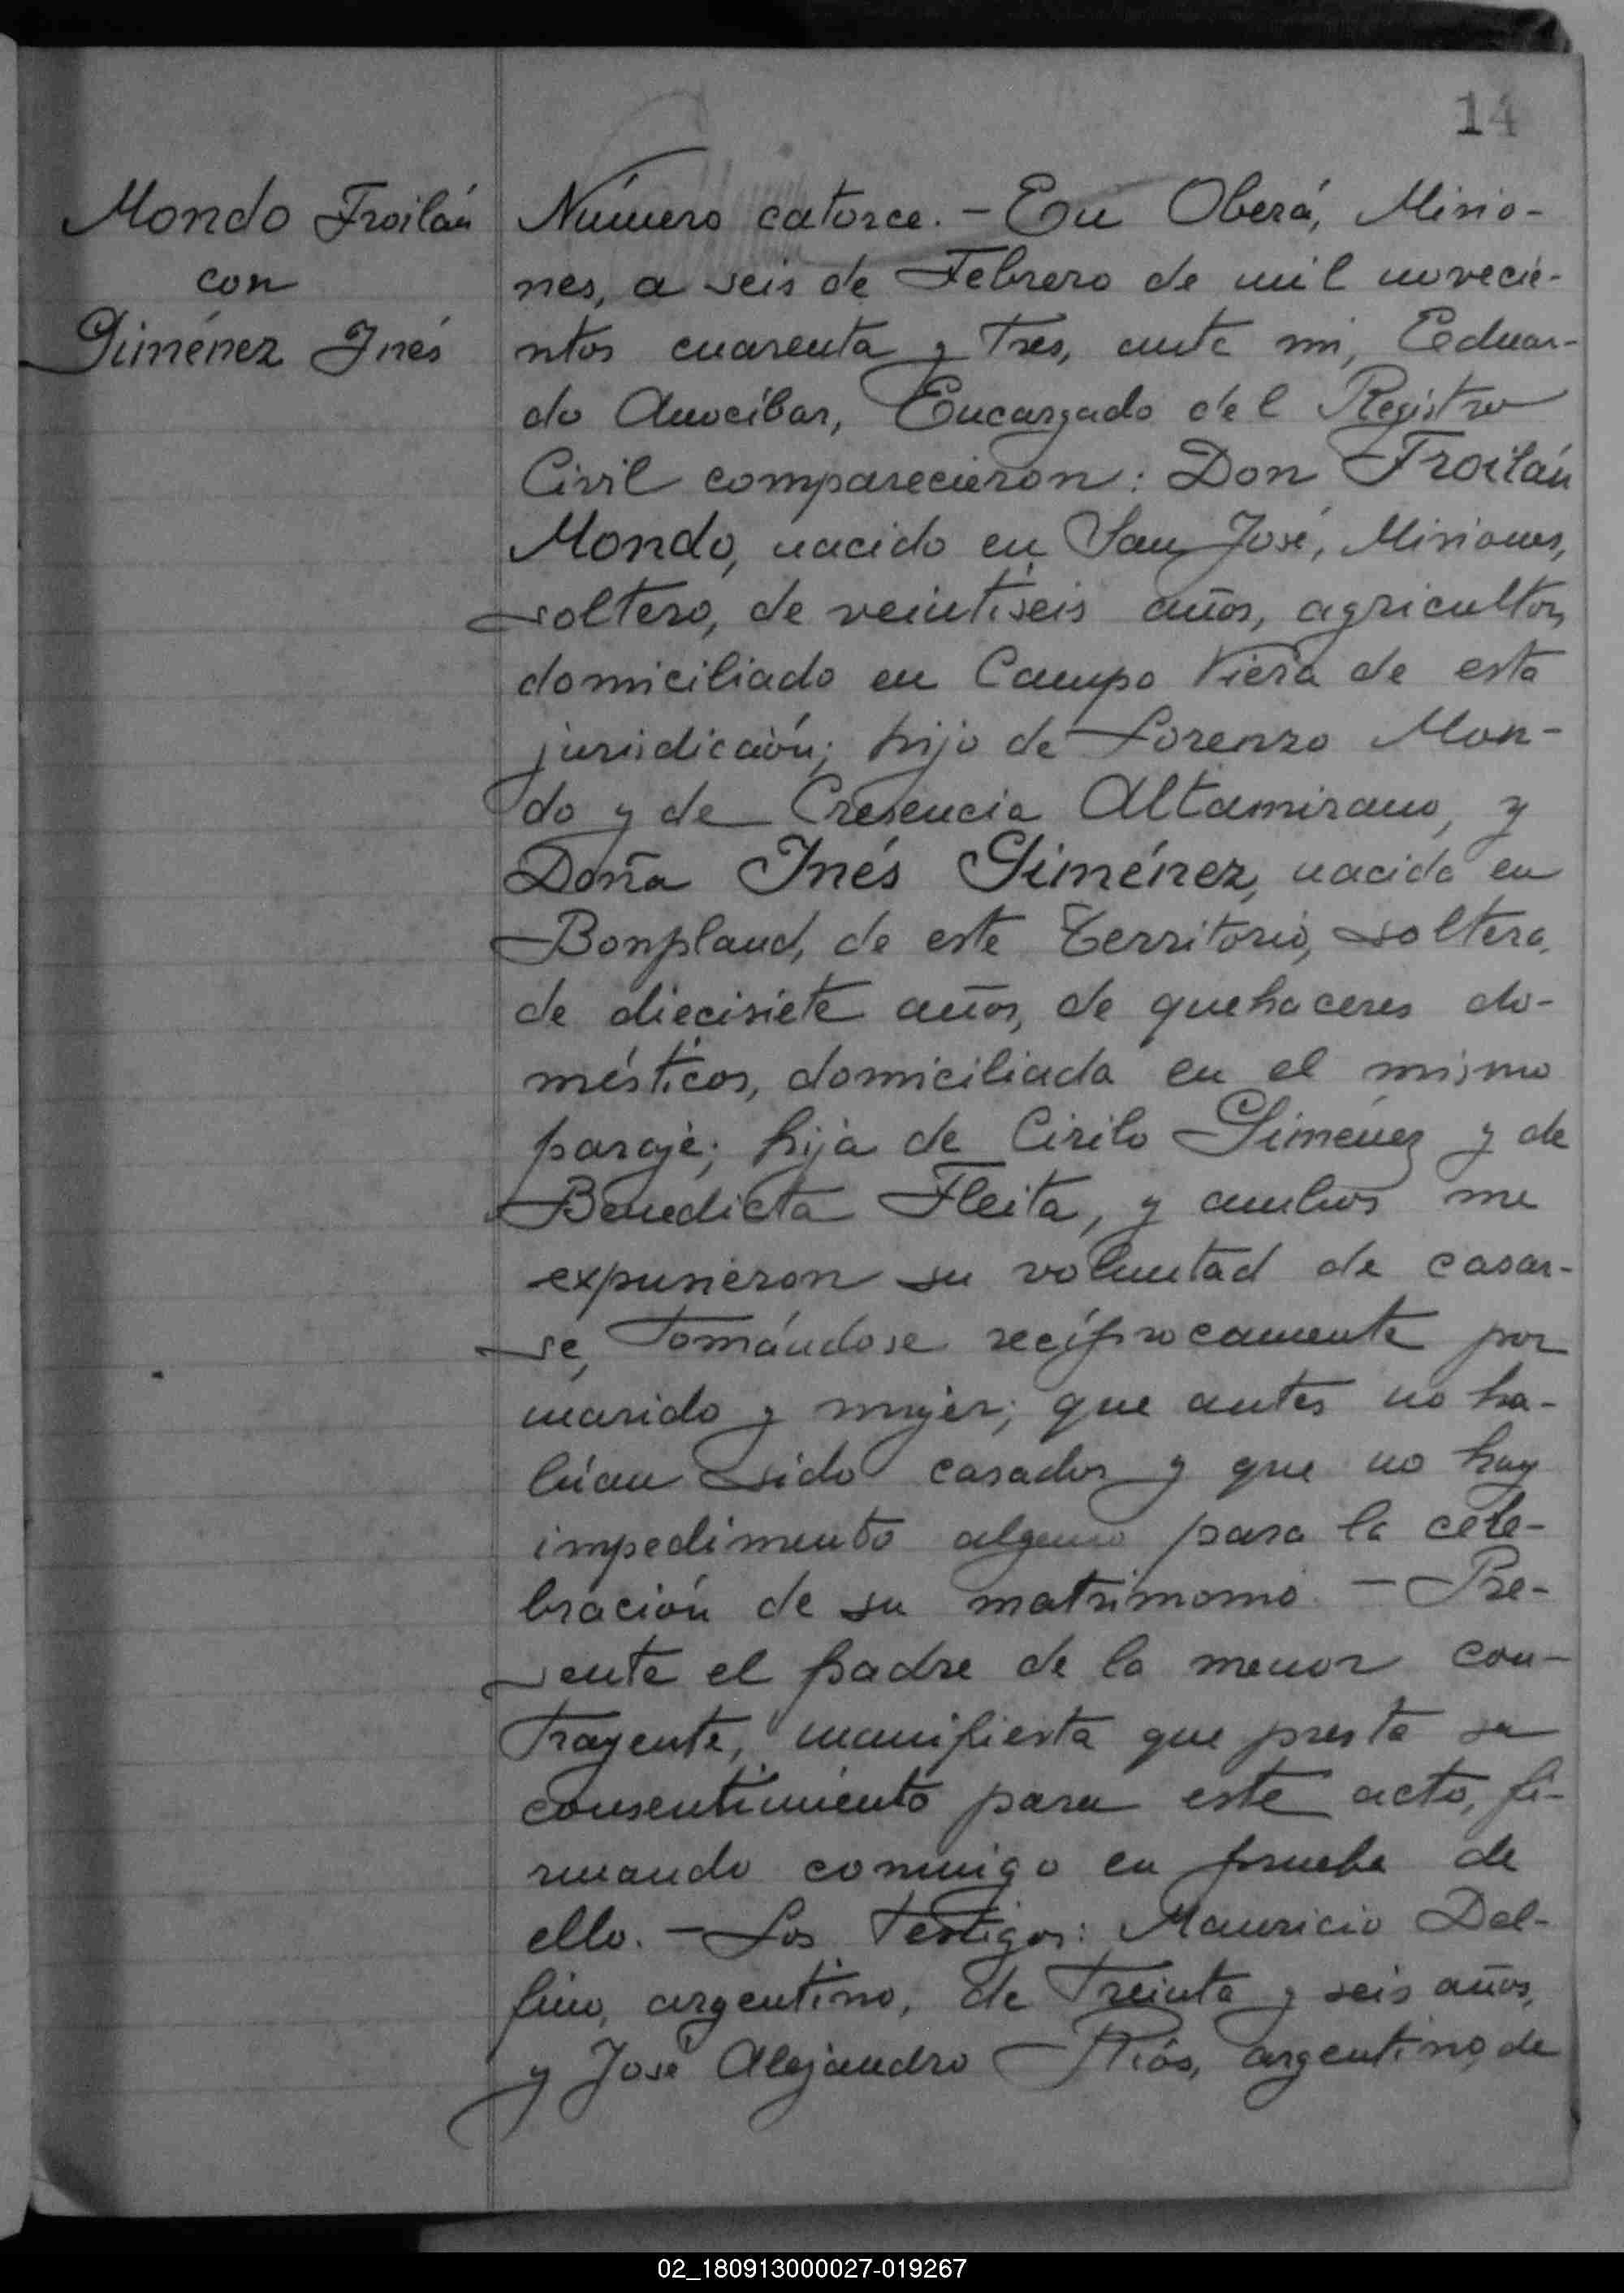 14
Mondo Froilán
con
Giménez Inés
Número catorce. - En Oberá, Misio-
nes, a seis de Febrero de mil novecie-
ntos cuarenta y tres, ante mi, Eduar-
do Anocíbar, Encargado del Registro
Civil comparecieron: Don Froilán
Mondo, nacido en San José, Misiones,
soltero, de veintiseis años, agricultor,
domiciliado en Campo Viera de esta
jurisdicción; hijo de Lorenzo Mon-
do y de Cresencia Altamirano, y
Doña Inés Giménez, nacida en
Bonpland, de este Territorio, soltera,
de diecisiete años, de quehaceres do-
mésticos, domiciliada en el mismo
paraje; hija de Cirilo Giménez y de
Benedicta Fleita, y ambos me
expusieron su voluntad de casar-
se, tomándose recíprocamente por
marido y mujer; que antes no ha-
bían sido casados y que no hay
impedimento alguno para la cele-
bración de su matrimonio. - Pre-
sente el padre de la menor con-
trayente, manifiesta que presta su
consentimiento para este acto, fi-
rmando conmigo en prueba de
ello. - Los testigos: Mauricio Del-
fino, argentino, de treinta y seis años,
y José Alejandro Ríos, argentino, de
02_180913000027-019267